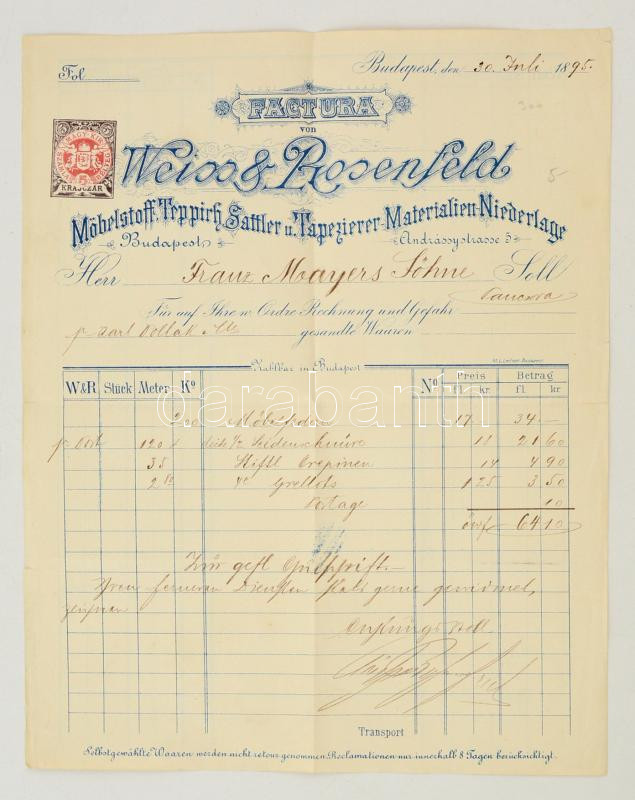 Fol
Budapest, den 30 Juli 1895.
300
FACTURA
von
5 MAGY. KIR. 5
5 KRAJCZÁR
Weiss & Rosenfeld
5
Möbelstoff, Teppich, Sattler u. Tapezierer-Materialien-Niederlage
Budapest, Andrássystrasse 5
Herr Franz Mayers Söhne Soll
Pancsova
Für auf Ihre w. Ordre Rechnung und Gefahr
gesandte Waaren
Zahlbar in Budapest
W&R Stück Meter Ko No Preis fl. kr. Betrag fl. kr
200 17 34.—
120 Seidenschnüre 18 21 60
35 Crepinen 14 4 90
2 80 1 25 3 50
Portage 10
64 10
Zur gefl
Ihren ferneren Diensten stets gerne gewidmet,
zeichnen
Transport
Selbstgewählte Waaren werden nicht retour genommen. Reclamationen nur innerhalb 8 Tagen berücksichtigt.
darabanth